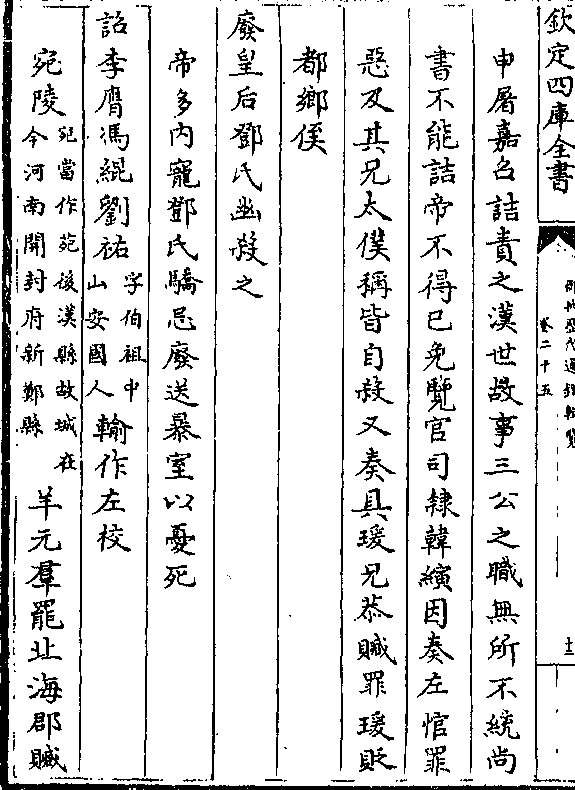 欽定四庫全書
御批歷代通鑑輯覽
卷二十五
十二
申屠嘉召詰責之漢世故事三公之職無所不統尚
書不能詰帝不得已免覽官司隸韓縯因奏左悺罪
惡及其兄太僕稱皆自殺又奏具瑗兄恭贓罪瑗貶
都鄉侯
廢皇后鄧氏幽殺之
帝多内寵鄧氏驕忌廢送暴室以憂死
詔李膺馮緄劉祐字伯祖中山安國人輸作左校
宛陵宛當作苑後漢縣故城在今河南開封府新鄭縣羊元羣罷北海郡贓